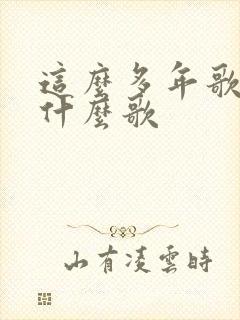 這麼多年歌
什麼歌
山有凌雲時